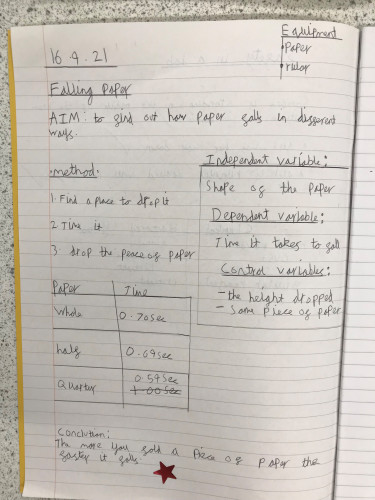 Equipment
• Paper
• rulor
16.4.21
Falling Paper
AIM: to find out how paper falls in different
ways.
Independent variable:
Shape of the paper
Dependent variable:
Time it takes to fall
Control variables:
- the height dropped
- Same piece of paper
method.
1. Find a place to drop it
2 Time it
3. drop the peace of paper
Paper Time
Whole 0.70sec
half 0.69sec
Quarter 0.59sec
1.00sec
Conclution:
The more you fold a piece of paper the
faster it falls